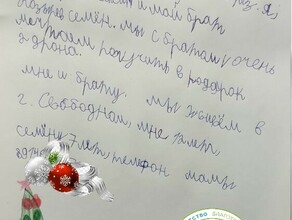 и май брат
семён. мы с братам очень
мечтаем получить в подарок
2 дрона.
мне и брату. мы живём в
г. Свободнам, мне 12 лет,
семёну 7 лет, телефон мамы